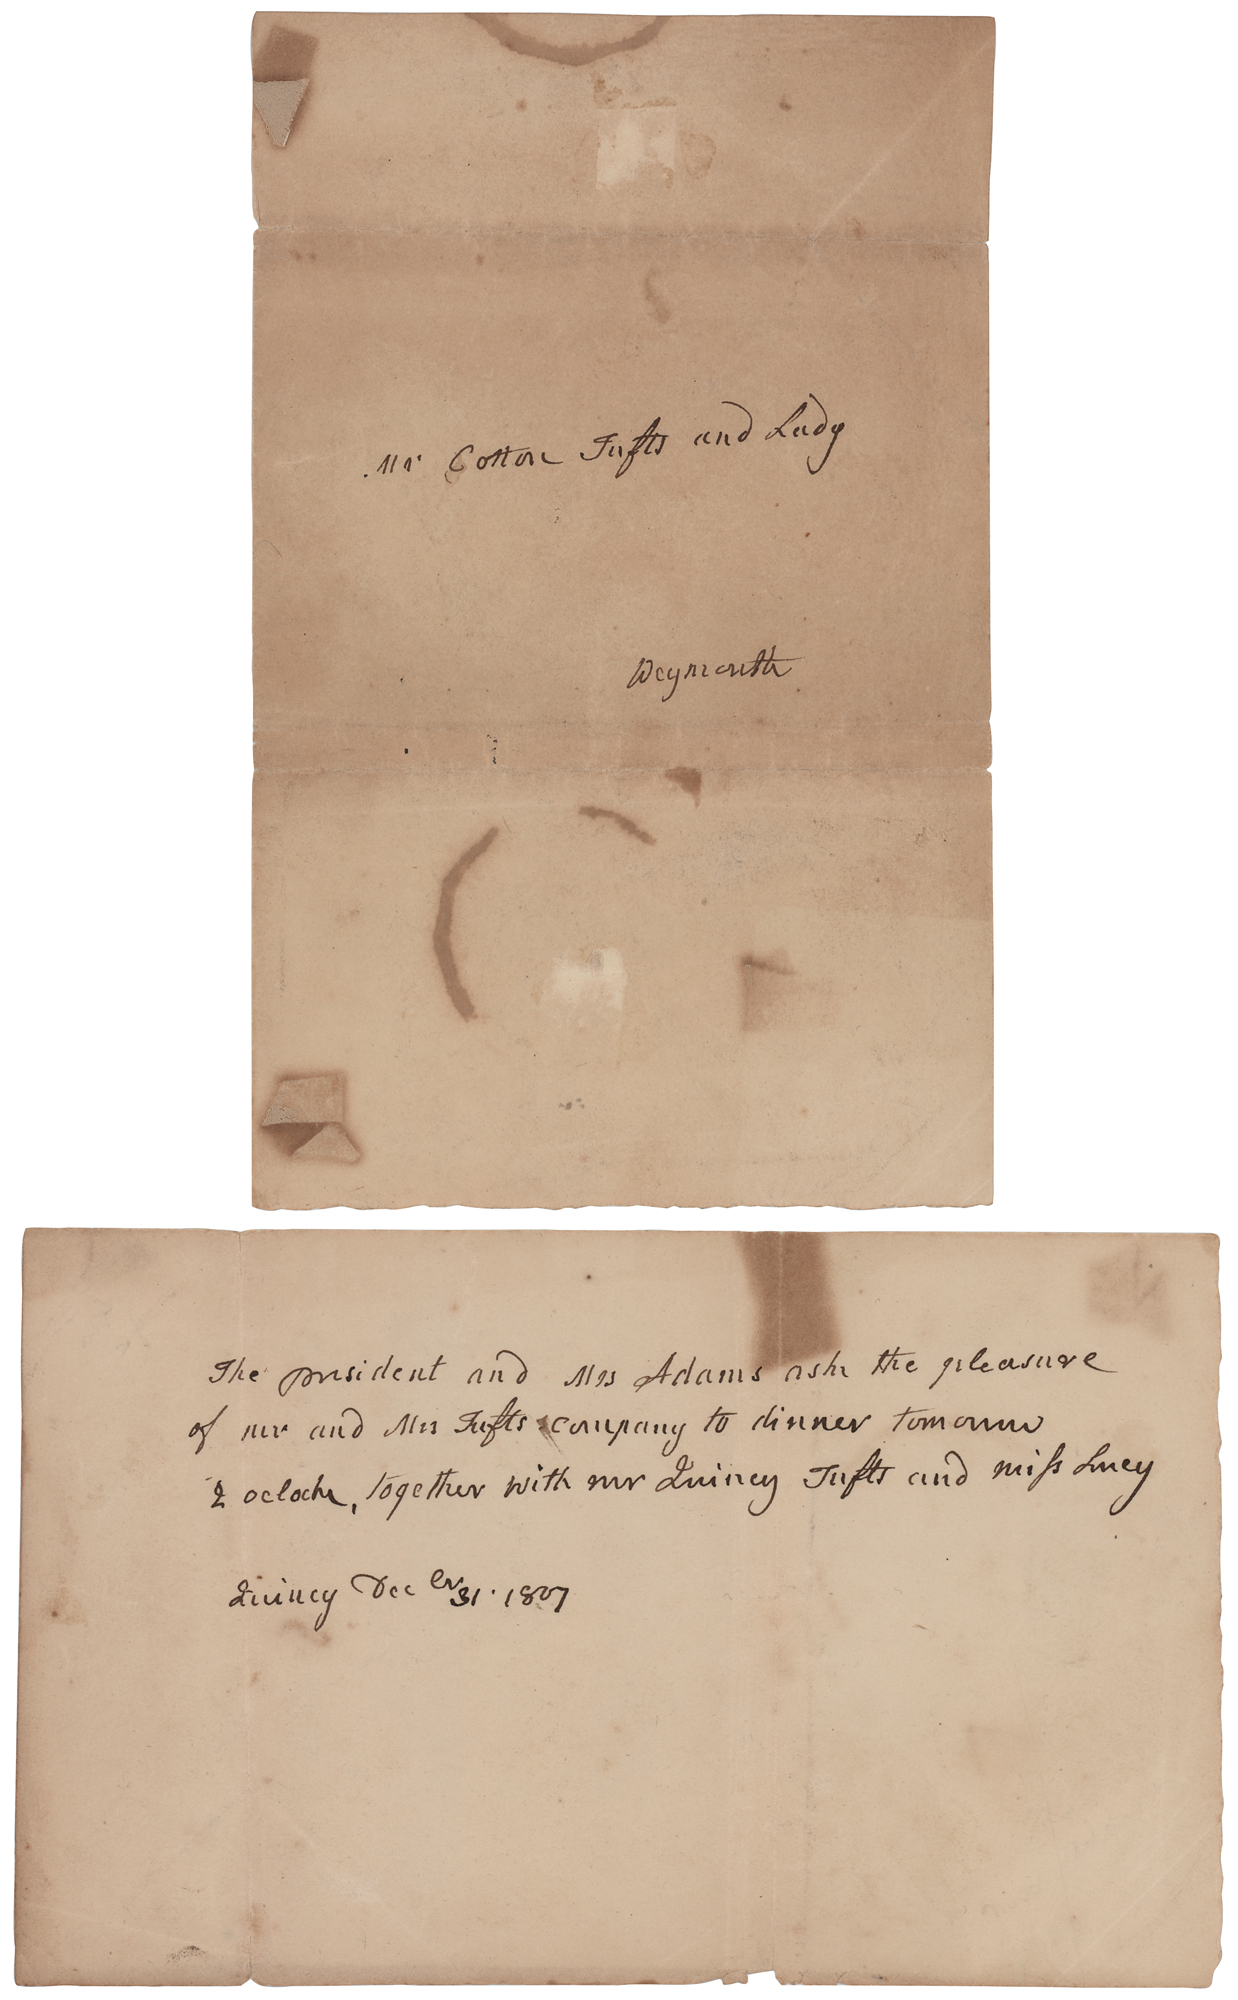 Mr Cotton Tufts and Lady
Weymouth
The president and Mrs Adams ask the pleasure
of mr and Mrs Tufts company to dinner tomorrow
2 oclock, together with mr Quincy Tufts and miss Lucy
Quincy Decbr 31. 1807